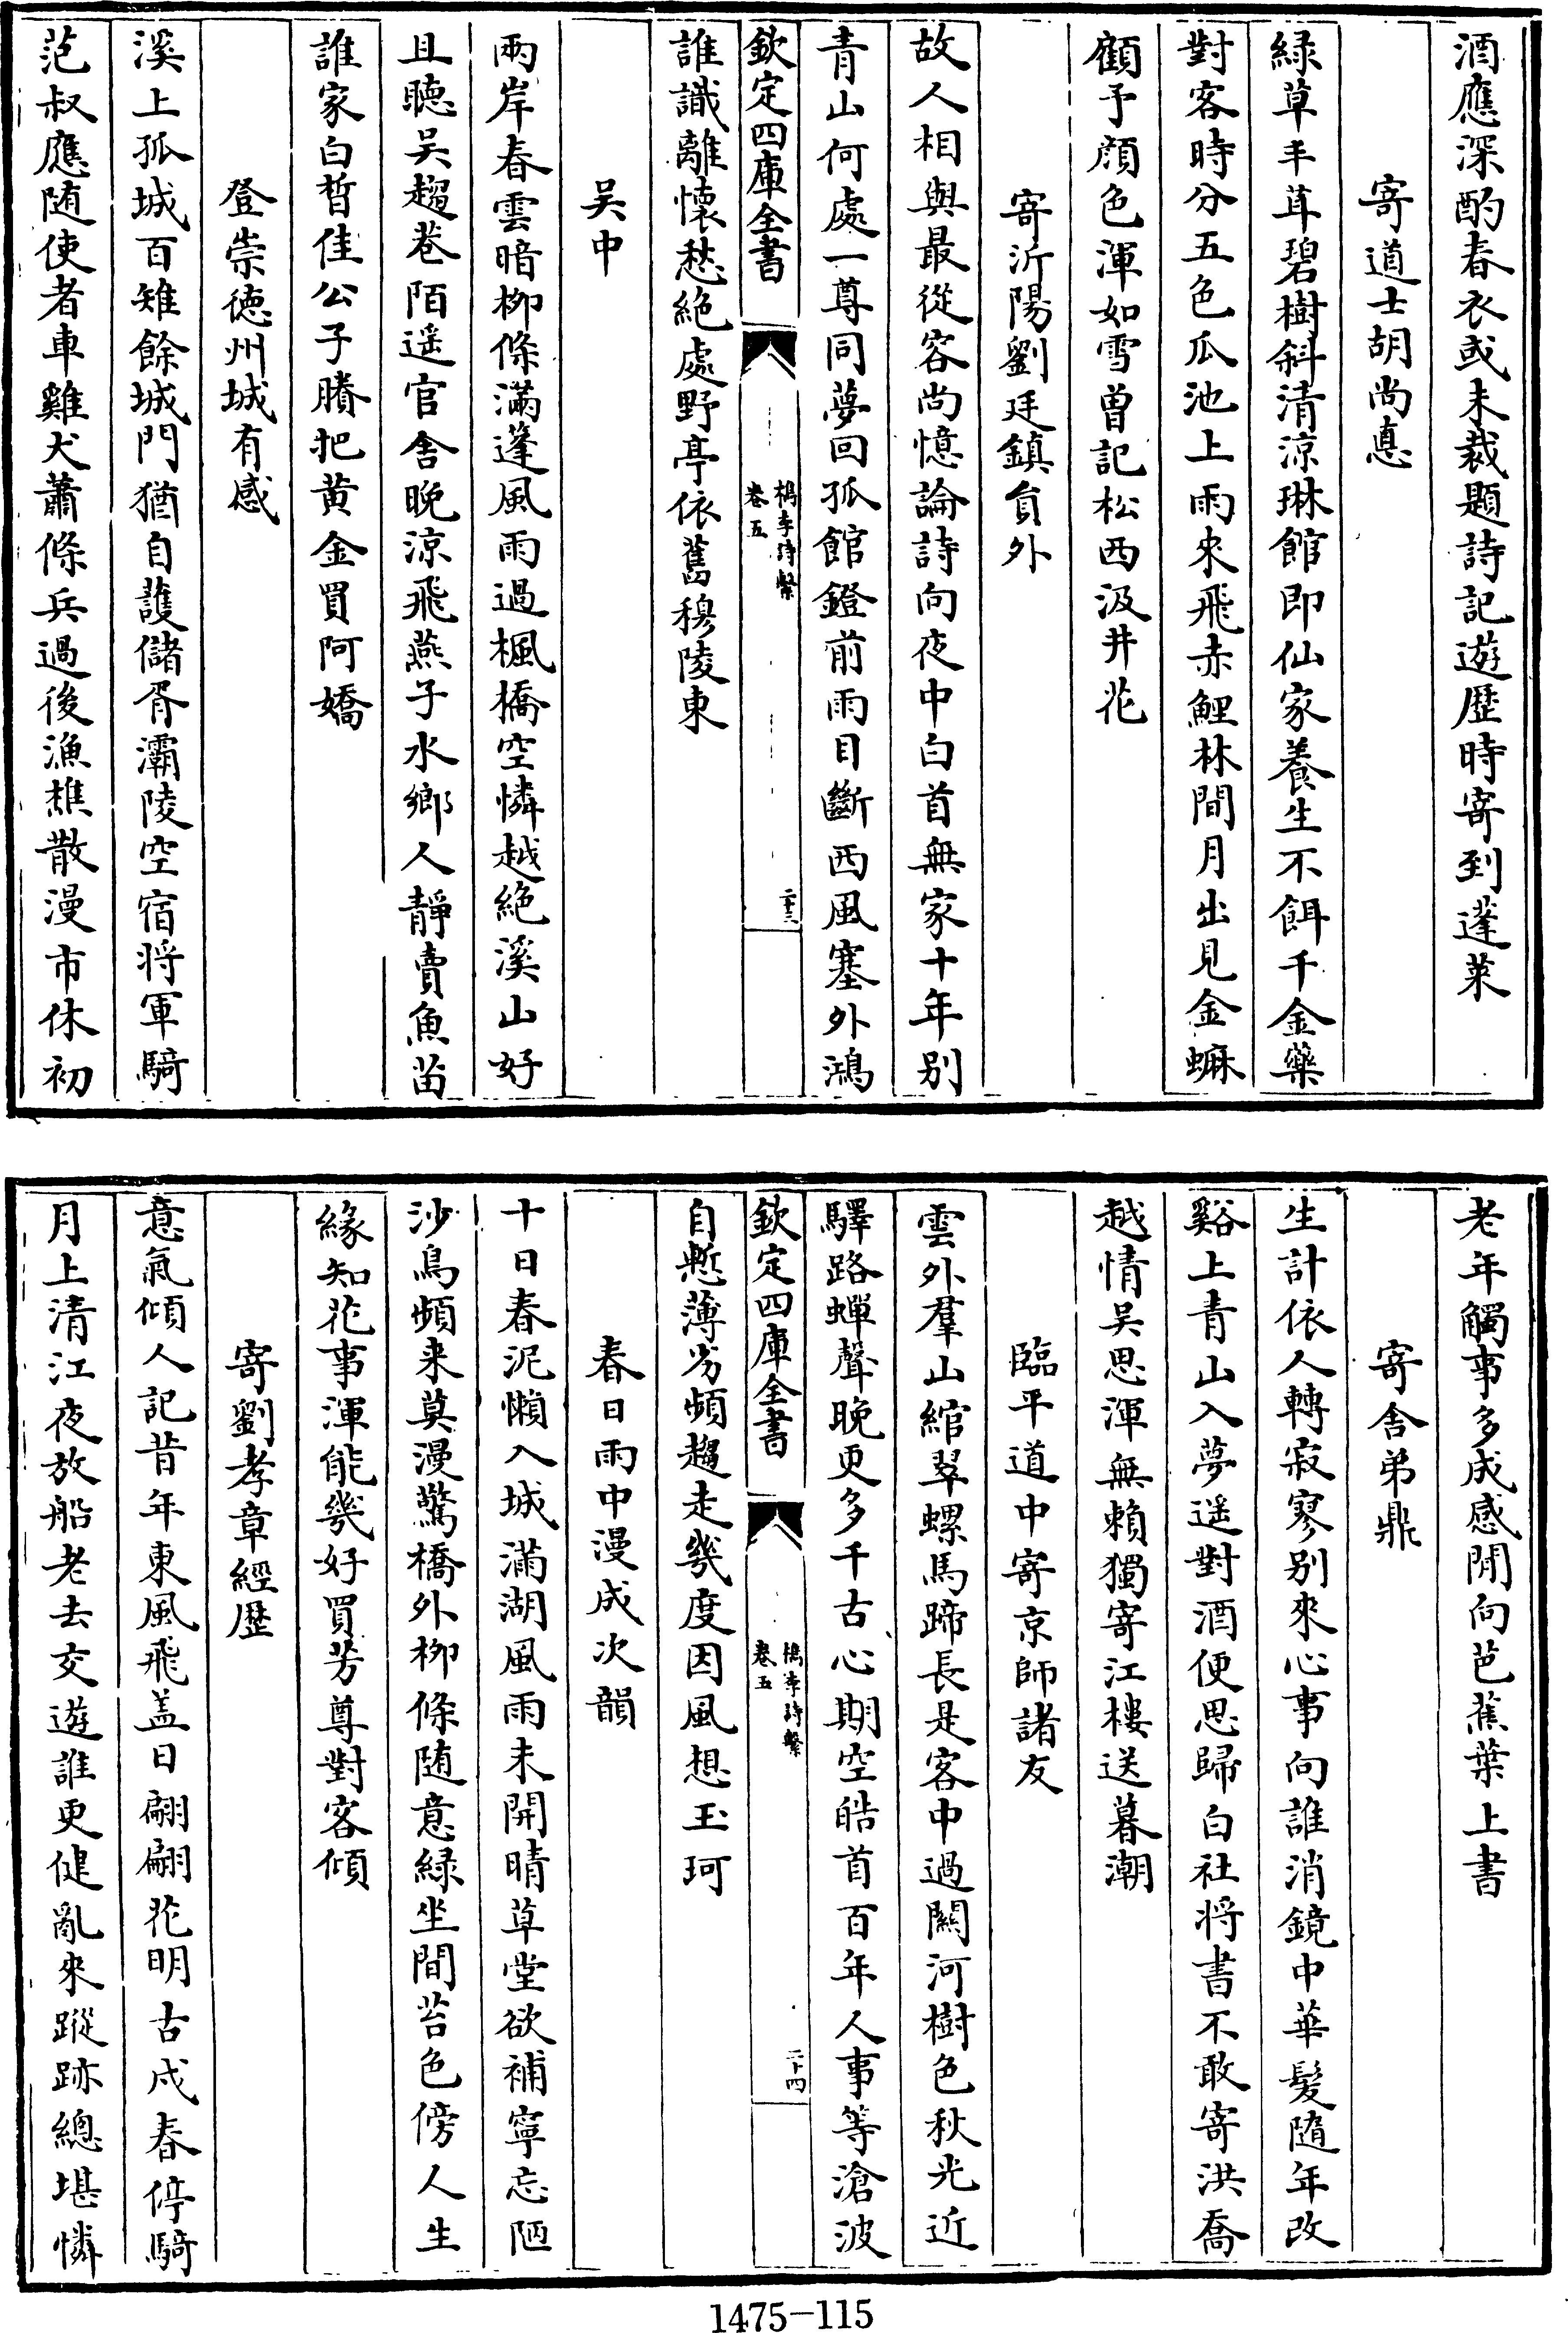 酒應深酌春衣或未裁題詩記遊歷時寄到蓬萊
寄道士胡尚悳
緑草丰茸碧樹斜清涼琳館即仙家養生不餌千金藥
對客時分五色瓜池上雨來飛赤鯉林間月出見金蟆
顧予顔色渾如雪曽記松西汲井花
寄沂陽劉廷鎮員外
故人相與最從容尚憶論詩向夜中白首無家十年别
青山何處一尊同夢回孤館鐙前雨目斷西風塞外鴻
欽定四庫全書
檇李詩繫
卷五
二十三
誰識離懷愁絶處野亭依舊穆陵東
吴中
兩岸春雲暗柳條滿篷風雨過楓橋空憐越絶溪山好
且聴吴趨巷陌遥官舍晚涼飛燕子水鄉人靜賣魚苗
誰家白皙佳公子賸把黄金買阿嬌
登崇徳州城有感
溪上孤城百雉餘城門猶自護儲胥灞陵空宿將軍騎
范叔應随使者車雞犬蕭條兵過後漁樵散漫市休初
老年觸事多成感閒向芭蕉葉上書
寄舍弟鼎
生計依人轉寂寥别來心事向誰消鏡中華髪隨年改
谿上青山入夢遥對酒便思歸白社將書不敢寄洪喬
越情吴思渾無賴獨寄江樓送暮潮
臨平道中寄京師諸友
雲外羣山綰翠螺馬蹄長是客中過闗河樹色秋光近
驛路蟬聲晚更多千古心期空皓首百年人事等滄波
欽定四庫全書
檇李詩繫
卷五
二十四
自慙薄劣頻趨走幾度因風想玉珂
春日雨中漫成次韻
十日春泥懶入城滿湖風雨未開晴草堂欲補寧忘陋
沙鳥頻来莫漫驚橋外柳條随意緑坐間苔色傍人生
緣知花事渾能幾好買芳尊對客傾
寄劉孝章經歴
意氣傾人記昔年東風飛盖日翩翩花明古戍春停騎
月上清江夜放船老去交遊誰更健亂來蹤跡總堪憐
1475-115